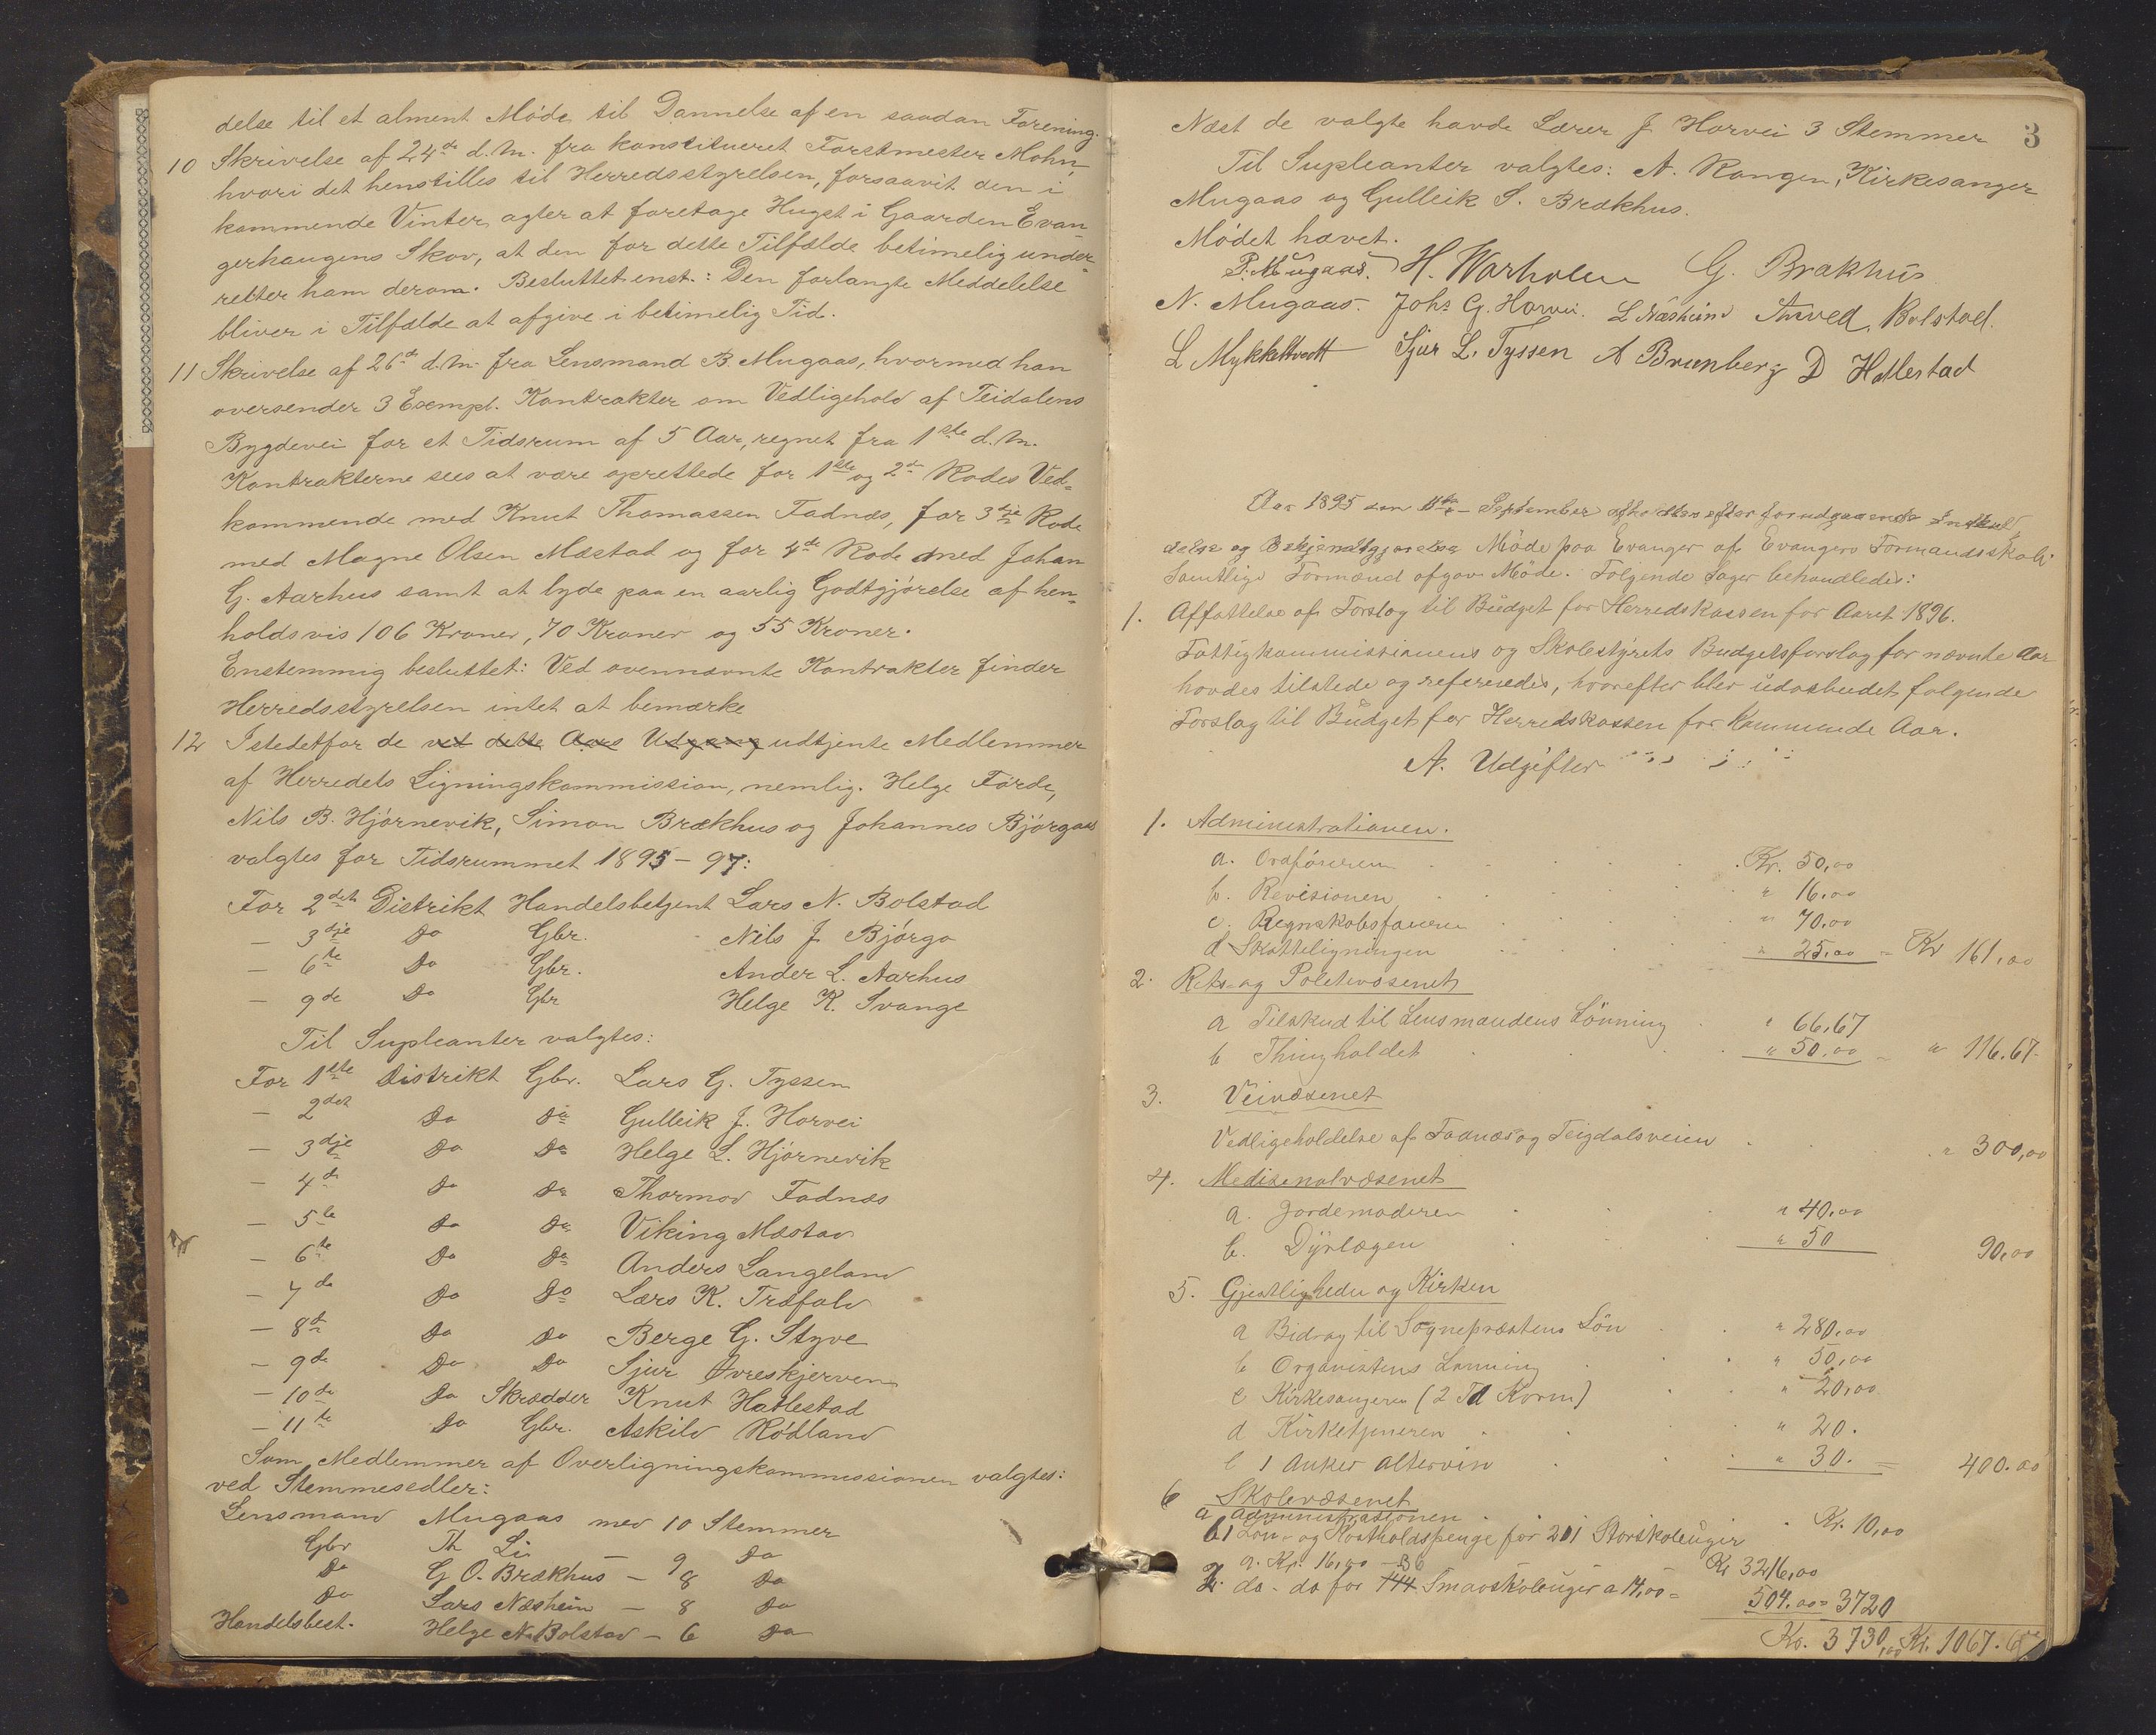 delse til et alment Møde til Dannelse af en saadan Forening.
10 Skrivelse af 24de d.M. fra konstitueret Forstmester Mohn,
hvori det henstilles til Herredsstyrelsen, forsaavit den i
kommende Vinter agter at foretage Hugst i Gaarden Evan-
gerhaugens Skov, at den for dette Tilfælde betimelig under-
retter ham derom. Besluttet enst.: Den forlangte Meddelelse
bliver i Tilfælde at afgive i betimelig Tid.
11 Skrivelse af 26de d.M. fra Lensmand B. Mugaas, hvormed han
oversender 3 Exempl. Kontrakter om Vedligehold af Teidalens
Bygdevei for et Tidsrum af 5 Aar, regnet fra 1ste d.M.
Kontrakterne sees at være oprettede for 1ste og 2de Rodes Ved-
kommende med Knut Thomassen Fadnæs, for 3dje Rode
med Magne Olsen Mæstad og for 4de Rode med Johan
G. Aarhus samt at lyde paa en aarlig Godtgjørelse af hen-
holdsvis 106 Kroner, 70 Kroner og 55 Kroner.
Enstemmig besluttet: Ved ovennævnte Kontrakter finder
Herredsstyrelsen intet at bemærke
12 Istedetfor de ved dette Aars Udgang udtjente Medlemmer
af Herredets Ligningskommission, nemlig. Helge Førde,
Nils B. Hjørnevik, Simon Brækhus og Johannes Bjørgaas
valgtes for Tidsrummet 1895-97:
For 2det Distrikt Handelsbetjent Lars N. Bolstad
- 3dje Do Gbr. Nils J Bjørgo
- 6te Do Gbr. Ander L. Aarhus
- 9de Do Gbr Helge K. Svange
Til Supleanter valgtes:
For 1ste Distrikt Gbr. Lars G. Tyssen
- 2det Do Do Gulleik J. Horvei
- 3dje Do Do Helge L. Hjørnevik
- 4de Do Do Thormod Fadnæs
- 5te Do Do Viking Mæstad
- 6te Do Do Anders Langeland
- 7de Do Do Lars K. Træfald
- 8de Do Do Berge G. Styve
- 9de Do Do Sjur Øvreskjerven
- 10de Do Skrædder Knut Hatlestad
- 11te Do Gbr. Askild Rødland
Som Medlemmer af Overligningskommissionen valgtes:
ved Stemmesedler:
Lensmand Mugaas med 10 Stemmer
Gbr Th Li - 9 Do
Do G O. Brækhus - 8 Do
Do Lars Næsheim - 8 Do
Handelsbest. Helge N. Bolstad - 6 Do
3
Næst de valgte havde Lærer J Horvei 3 Stemmer
Til Supleanter valgtes: A. Rongen, Kirkesanger
Mugaas og Gulleik S. Brækhus.
Mødet hævet.
P. Mugaas. H. Warholm G. Brakhus
N. Mugaas. Johs G. Horvei. L Næsheim Amved. Bolstad.
L Mykkeltvedt Sjur L. Tyssen A Brunborg D Hatlestad
Aar 1895 den 11te September afholdtes efter forudgaaende Indkal-
delse og Bekjendtgjørelse Møde paa Evanger af Evangers Formandsskab.
Samtlige Formænd afgav Møde. Følgende Sager behandledes:
1. Affattelse af Forslag til Budget for Herredskassen for Aaret 1896.
Fattigkommissionens og Skolestyrets Budgetsforslag for nævnte Aar
havdes tilstede og refereredes, hvorefter blev udarbeidet følgende
Forslag til Budget for Herredskassen for kommende Aar.
A. Udgifter
1. Administrationen.
a. Ordføreren Kr. 50,00
b. Revisionen " 16,00
c. Regnskabsføreren " 70,00
d Skatteligningen " 25,00 = Kr 161,00
2. Rets- og Politivæsenet
a Tilskud til Lensmandens Lønning " 66,67
b Thingholdet " 50,00 = " 116.67
3. Veivæsenet
Vedligeholdelse af Fadnæs og Teigdalsveien " 300,00
4. Medisenalvæsenet
a. Jordemoderen " 40,00
b. Dyrlægen " 50 90,00
5. Gjestligheden og Kirken
a Bidrag til Sognepræstens Løn " 280,00
b Organistens Lønning " 50,00
c Kirkesangeren (2 Td Korn) " 20,00
d Kirketjeneren " 20.
e 1 Anker Altervin " 30. = 400.00
6 Skolevæsenet
a Administrationen Kr. 10,00
b1 Løn- og Kostholdspenge for 201 Storskoleuger
a. Kr. 16,00 Kr 3216,00
2. do - do for 144 36 Smaaskoleuger a 14,00 = 504.00 = 3720
Kr. 3730,00 Kr. 1067.67